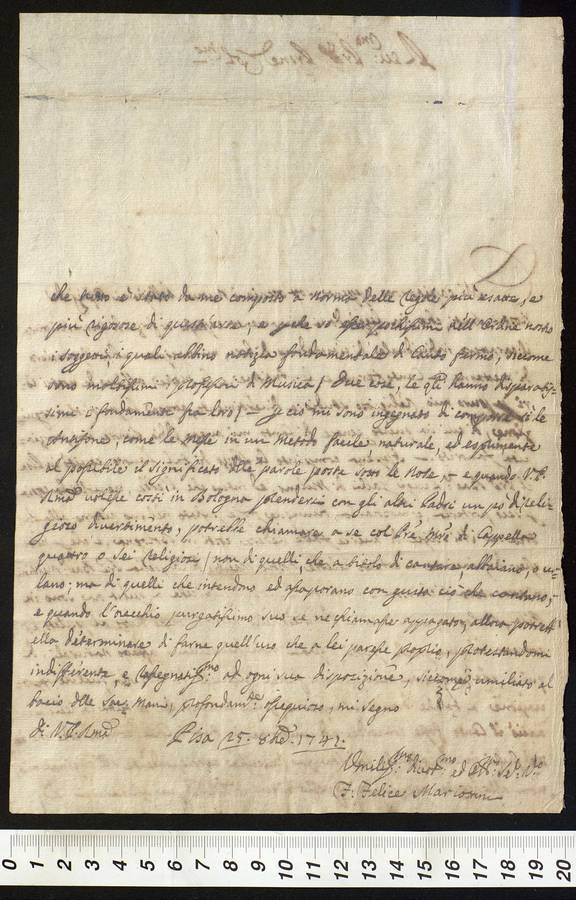 Rev.mo P.
che tutto è stato da me composto a norma delle regole più esatte, e
più rigorose di quest'arte; e perche so esser pochissimi nell'Ordine nostro
i soggetti, i quali abbino notizia fondamentale di Canto fermo, siccome
sono moltissimi i Professori di Musica / due cose, le q.li hanno disparatis-
simi i fondamenti fra loro / perciò mi sono ingegnato di comporre sì le
Antifone, come le Messe in un metodo facile, naturale, ed esprimente
al possibile il significato delle parole poste sotto le Note, e quando V. P.
R.ma volesse costì in Bologna prendersi con gli altri Padri un po di reli-
gioso divertimento, potrebbe chiamare a se col P.re M.ro di Cappella
quattro o sei religiosi / non di quelli, che a titolo di cantare, abbaiano, o u-
lano; ma di quelli che intendono ed assaporano con gusto ciò che cantano,
e quando l'orecchio purgatissimo suo se ne chiamasse appagato, allora potrebb'
ella determinare di farne quell'uso che a lei paresse proprio, protestandomi
indifferente, e rassegnatiss.mo ad ogni sua disposizione, siccome umiliato al
bacio delle Sac. Mani, profondam.te ossequioso, mi segno
Di V. P. R.ma Pisa 25. 8bre. 1742.
Umiliss.mo Divot.mo ed Obb. Se.
F. Felice Mariottini
0 1 2 3 4 5 6 7 8 9 10 11 12 13 14 15 16 17 18 19 20